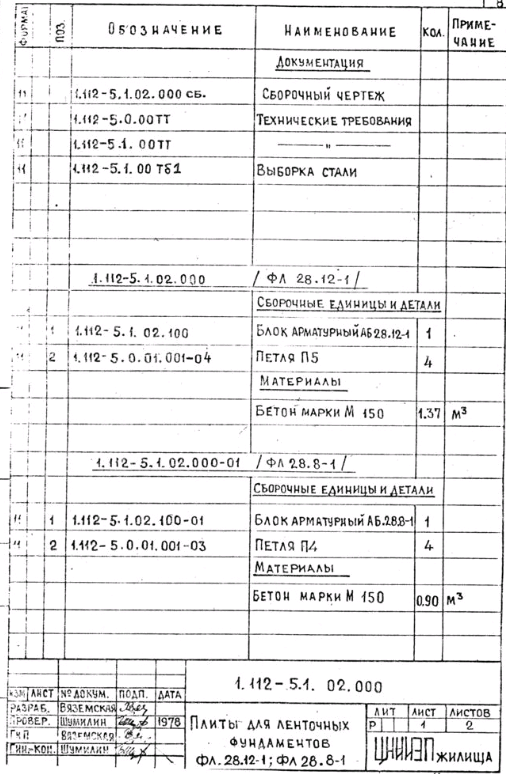 8
ФОРМАТ ПОЗ. ОБОЗНАЧЕНИЕ НАИМЕНОВАНИЕ КОЛ. ПРИМЕ-
ЧАНИЕ
ДОКУМЕНТАЦИЯ
11 1.112-5.1.02.000 СБ. СБОРОЧНЫЙ ЧЕРТЕЖ
1.112-5.0.00ТТ ТЕХНИЧЕСКИЕ ТРЕБОВАНИЯ
11 1.112-5.1.00ТТ —— " ——
11 1.112-5.1.00 ТБ1 ВЫБОРКА СТАЛИ
1.112-5.1.02.000 / ФЛ 28.12-1 /
СБОРОЧНЫЕ ЕДИНИЦЫ И ДЕТАЛИ
11 1 1.112-5.1.02.100 БЛОК АРМАТУРНЫЙ АБ28.12-1 1
11 2 1.112-5.0.01.001-04 ПЕТЛЯ П5 4
МАТЕРИАЛЫ
БЕТОН МАРКИ М 150 1.37 М³
1.112-5.1.02.000-01 / ФЛ 28.8-1 /
СБОРОЧНЫЕ ЕДИНИЦЫ И ДЕТАЛИ
11 1 1.112-5.1.02.100-01 БЛОК АРМАТУРНЫЙ АБ.28.8-1 1
11 2 1.112-5.0.01.001-03 ПЕТЛЯ П4 4
МАТЕРИАЛЫ
БЕТОН МАРКИ М 150 0.90 М³
1.112-5.1. 02.000
ИЗМ ЛИСТ № ДОКУМ. ПОДП. ДАТА
РАЗРАБ. ВЯЗЕМСКАЯ
ПРОВЕР. ШУМИЛИН 1978
ГИП ВЯЗЕМСКАЯ
ГИИ-КОН. ШУМИЛИН
ПЛИТЫ ДЛЯ ЛЕНТОЧНЫХ
ФУНДАМЕНТОВ
ФЛ.28.12-1; ФЛ 28.8-1
ЛИТ ЛИСТ ЛИСТОВ
Р 1 2
ЦНИИЭП ЖИЛИЩА